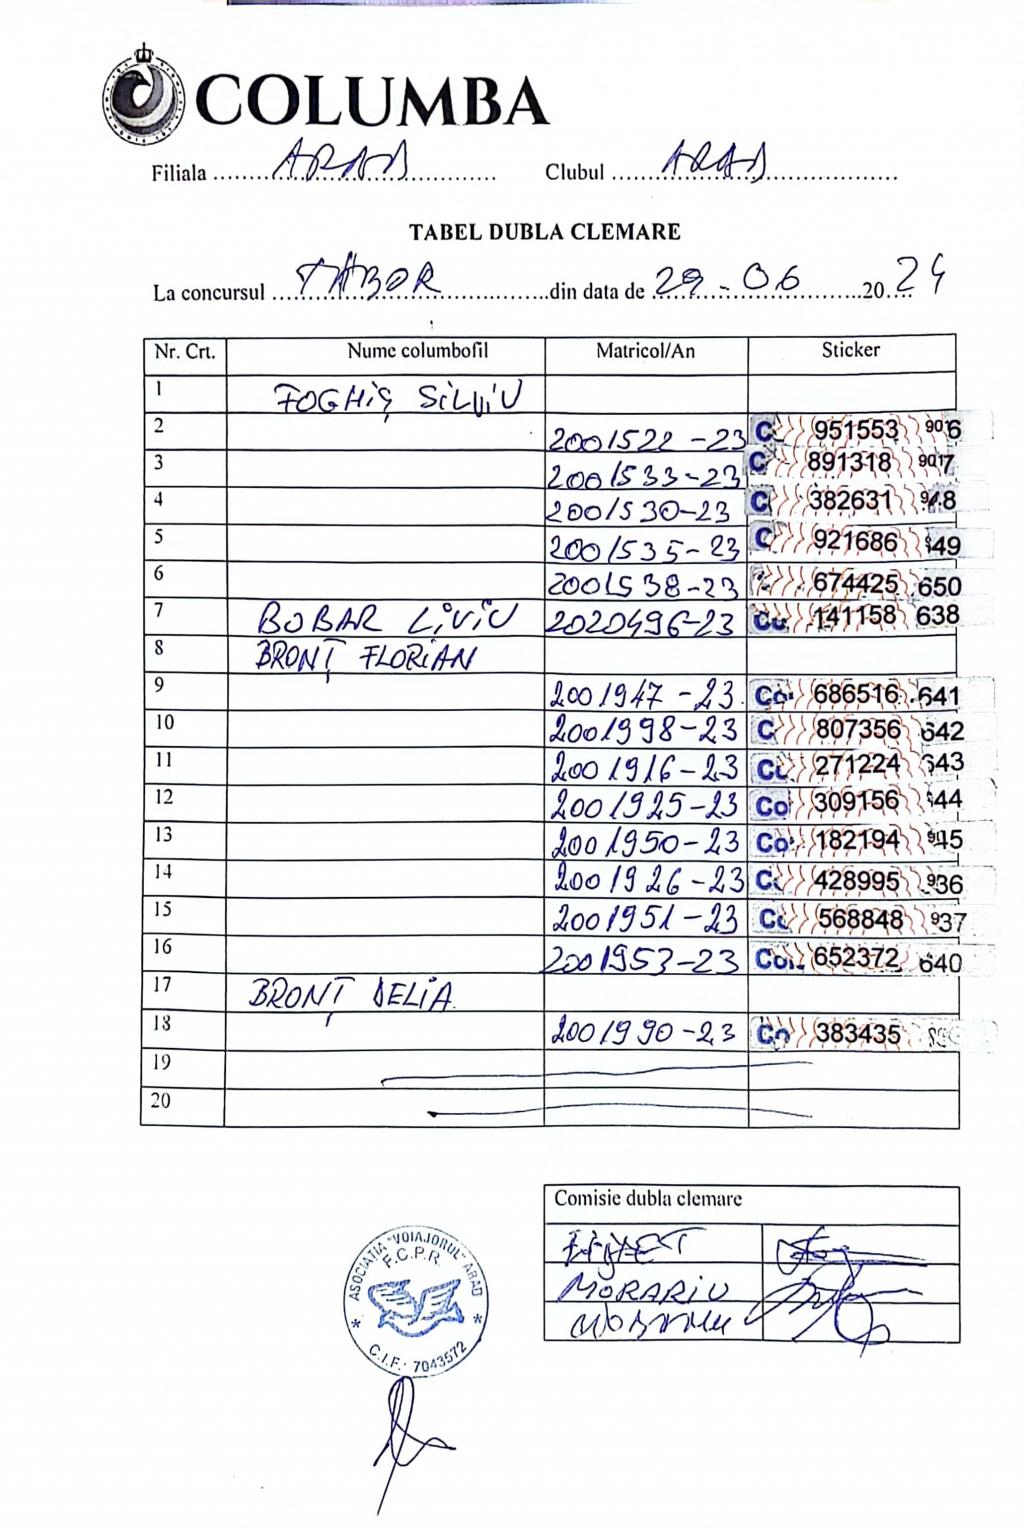 COLUMBA
Filiala ARAD Clubul ARAD
TABEL DUBLA CLEMARE
La concursul TABOR din data de 29-06 2024
Nr. Crt. Nume columbofil Matricol/An Sticker
1 FOGHIȘ SILVIU
2 2001522-23 C 951553 906
3 2001533-23 C 891318 907
4 2001530-23 C 382631 948
5 2001535-23 C 921686 949
6 2001538-23 674425 650
7 BOBAR LIVIU 2020496-23 Co 141158 638
8 BRONȚ FLORIAN
9 2001947-23 Co 686516 641
10 2001998-23 C 807356 642
11 2001916-23 Co 271224 643
12 2001925-23 Co 309156 644
13 2001950-23 Co 182194 945
14 2001926-23 Co 428995 936
15 2001951-23 Co 568848 937
16 2001953-23 Col 652372 640
17 BRONȚ DELIA
18 2001990-23 Co 383435
19
20
Comisie dubla clemare
MORARIU
ASOCIATIA "VOIAJORUL" ARAD
F.C.P.R.
C.I.F.: 7043572